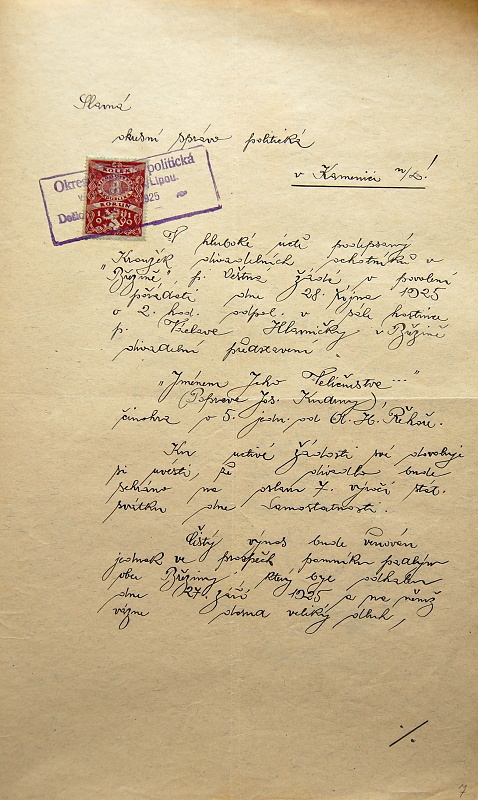 Slavná
okresní správo politická
v Kamenici n/L!
Okres politická
Lipou.
1925
Došlo
KOLEK
KORUN
1919
V hluboké úctě podepsaný
"Kroužek divadelních ochotníků v
Březině" p. Včelná žádá v povolení
pořádati dne 28. října 1925
o 2. hod. odpol. v sále hostince
p. Václava Hlavničky v Březině
divadelní představení
"Jménem Jeho Veličenstva..."
(Poprava Jos. Kudrny)
činohra o 5. jedn. od A. H. Řehoře.
Ku uctivé žádosti své dovoluje
si uvésti, že divadlo bude
sehráno na oslavu 7. výročí stát.
svátku dne samostatnosti.
Čistý výnos bude věnován
jednak ve prospěch pomníku padlým
obce Březiny, který byl odhalen
dne 27. září 1925 a na němž
vázne dosud veliký dluh,
./.
7